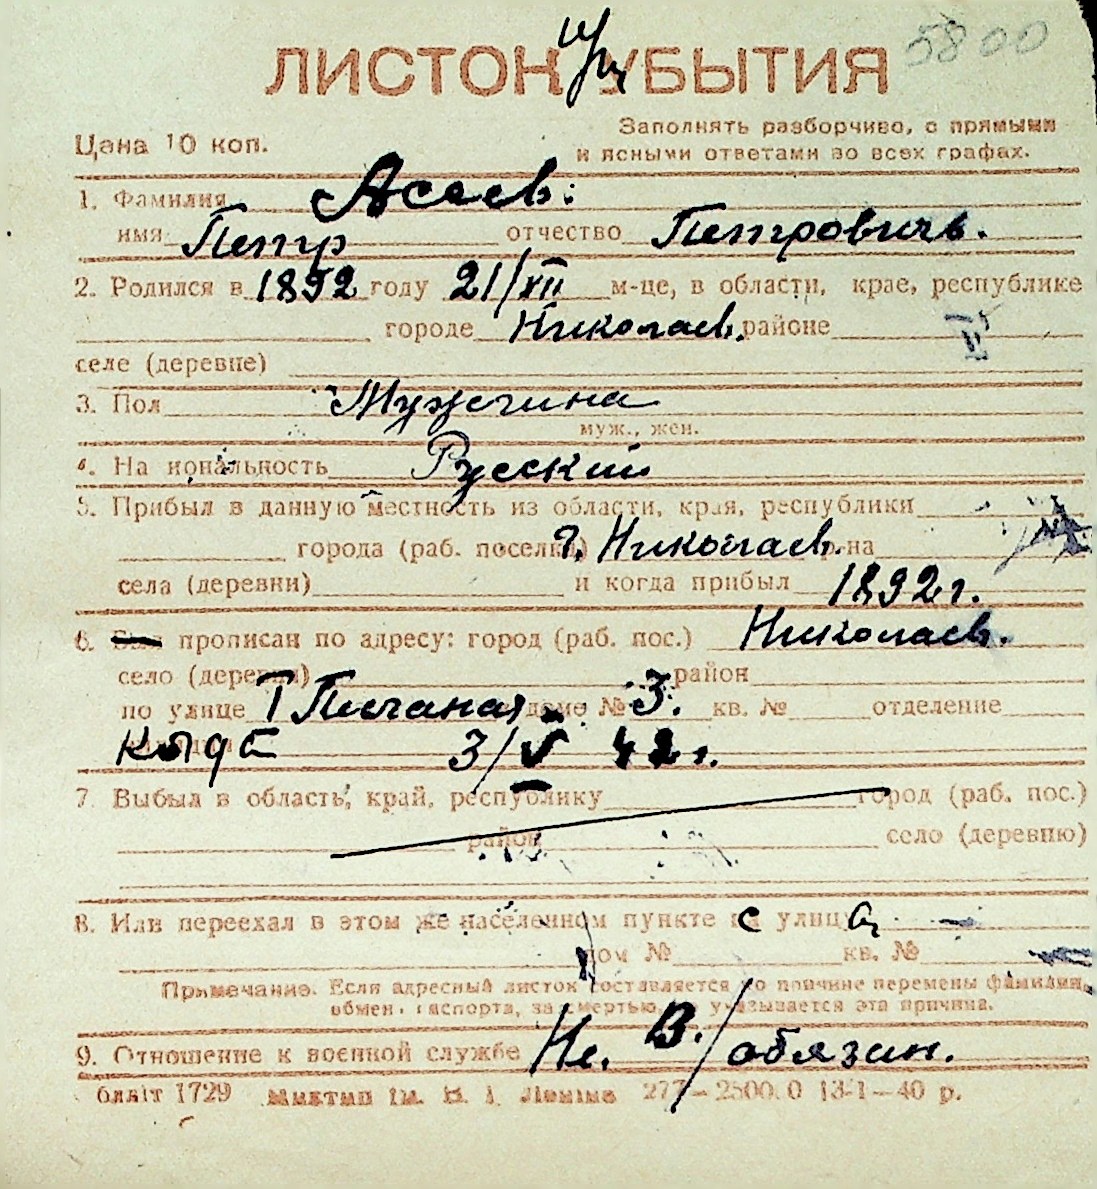 5800
ЛИСТОК УБЫТИЯ
Цена 10 коп.
Заполнять разборчиво, с прямыми
и ясными ответами во всех графах.
1. Фамилия Асаев.
имя Петр отчество Петровичъ.
2. Родился в 1892 году 21/XII м-це, в области, крае, республике
городе Николаев. районе
селе (деревне)
3. Пол Мужчина
муж., жен.
4. Национальность Русский
5. Прибыл в данную местность из области, края, республики
города (раб. поселка) г. Николаев. р-на
села (деревни) и когда прибыл 1892 г.
6. прописан по адресу: город (раб. пос.) Николаев.
село (деревни) район
по улице доме № 3. кв. № отделение
Когда 3/V 42 г.
7. Выбыл в область, край, республику город (раб. пос.)
район село (деревню)
8. Или переехал в этом же населенном пункте с улиц
дом № кв. №
Примечание. Если адресный листок составляется по причине перемены фамилии,
обмен паспорта, за смертью, указывается эта причина.
9. Отношение к военной службе Не. В./обязан.
1729 277—2500.0 13-1—40 р.